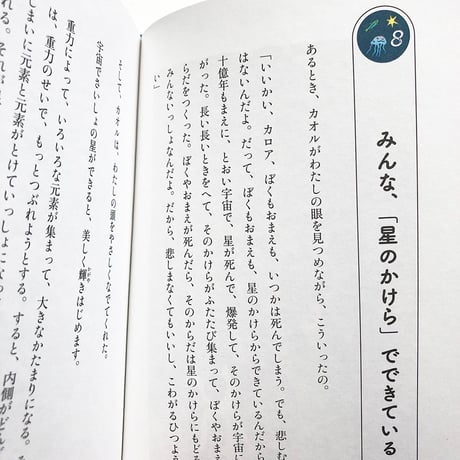 8
みんな、「星のかけら」でできている
あるとき、カオルがわたしの眼を見つめながら、こういったの。
「いいかい、カロア、ぼくもおまえも、いつかは死んでしまう。でも、悲しむ
はないんだよ。だって、ぼくもおまえも、星のかけらからできているんだから
十億年もまえに、とおい宇宙で、星が死んで、爆発して、そのかけらが宇宙に
がった。長い長いときをへて、そのかけらがふたたび集まって、ぼくやおまえ
らだをつくった。ぼくやおまえが死んだら、そのからだは星のかけらにもどる
みんないっしょなんだよ。だから、悲しまなくてもいいし、こわがるひつよう
い」
そして、カオルは、わたしの頭をやさしくなでてくれた。
宇宙でさいしょの星ができると、美しく輝きはじめます。
重力によって、いろいろな元素が集まって、大きなかたまりになる。
は、重力のせいで、もっとつぶれようとする。すると、内側がどん
しまいに元素と元素がとけていっしょになっ
れる。それが